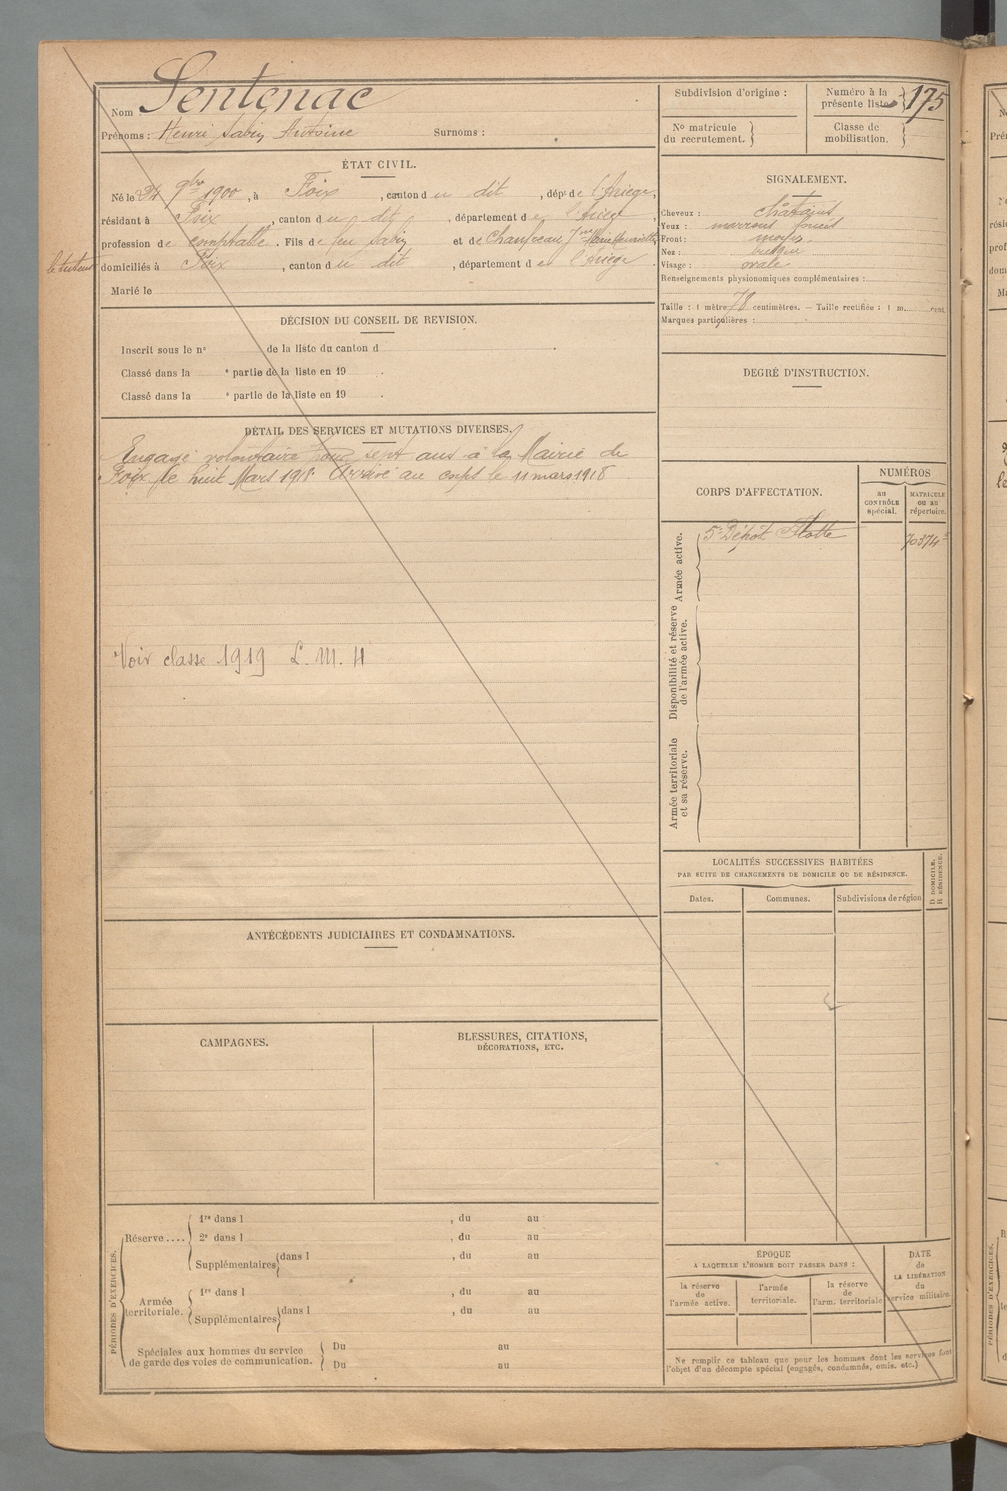 Nom Sentenac
Prénoms : Henri Sabin Antoine Surnoms :
Subdivision d'origine :
Numéro à la présente liste 175
No matricule du recrutement.
Classe de mobilisation.
ÉTAT CIVIL.
Né le 24 9bre 1900, à Foix, canton du dit, dépt de l'Ariège,
résidant à Foix, canton du dit, département de l'Ariège,
profession de comptable. Fils de feu Sabin et de Marie Henriette,
le tuteur domiciliés à Foix, canton du dit, département de l'Ariège
Marié le
SIGNALEMENT.
Cheveux : châtains
Yeux : marrons foncés
Front : moyen
Nez :
Visage : ovale
Renseignements physionomiques complémentaires :
Taille : 1 mètre 78 centimètres. — Taille rectifiée : 1 m. cent.
Marques particulières :
DÉCISION DU CONSEIL DE REVISION.
Inscrit sous le n° de la liste du canton d
Classé dans la e partie de la liste en 19 .
Classé dans la e partie de la liste en 19 .
DEGRÉ D'INSTRUCTION.
DÉTAIL DES SERVICES ET MUTATIONS DIVERSES.
Engagé volontaire pour sept ans à la Mairie de
Foix le huit Mars 1918. Arrivé au corps le 11 mars 1918
Voir classe 1919 L. M. 11
CORPS D'AFFECTATION.
NUMÉROS
au CONTRÔLE spécial.
MATRICULE ou au répertoire.
Armée active.
5e Dépôt Flotte 70374
Disponibilité et réserve de l'armée active.
Armée territoriale et sa réserve.
LOCALITÉS SUCCESSIVES HABITÉES
PAR SUITE DE CHANGEMENTS DE DOMICILE OU DE RÉSIDENCE.
Dates. Communes. Subdivisions de région
D DOMICILE.
R RÉSIDENCE.
ANTÉCÉDENTS JUDICIAIRES ET CONDAMNATIONS.
CAMPAGNES.
BLESSURES, CITATIONS,
DÉCORATIONS, ETC.
PÉRIODES D'EXERCICES.
Réserve ....
1re dans l , du au
2e dans l , du au
Supplémentaires dans l , du au
Armée territoriale.
1re dans l , du au
Supplémentaires dans l , du au
Spéciales aux hommes du service
de garde des voies de communication.
Du au
Du au
ÉPOQUE
A LAQUELLE L'HOMME DOIT PASSER DANS :
la réserve de l'armée active.
l'armée territoriale.
la réserve de l'arm. territoriale
DATE de LA LIBÉRATION du service militaire.
Ne remplir ce tableau que pour les hommes dont les services font
l'objet d'un décompte spécial (engagés, condamnés, omis. etc.)